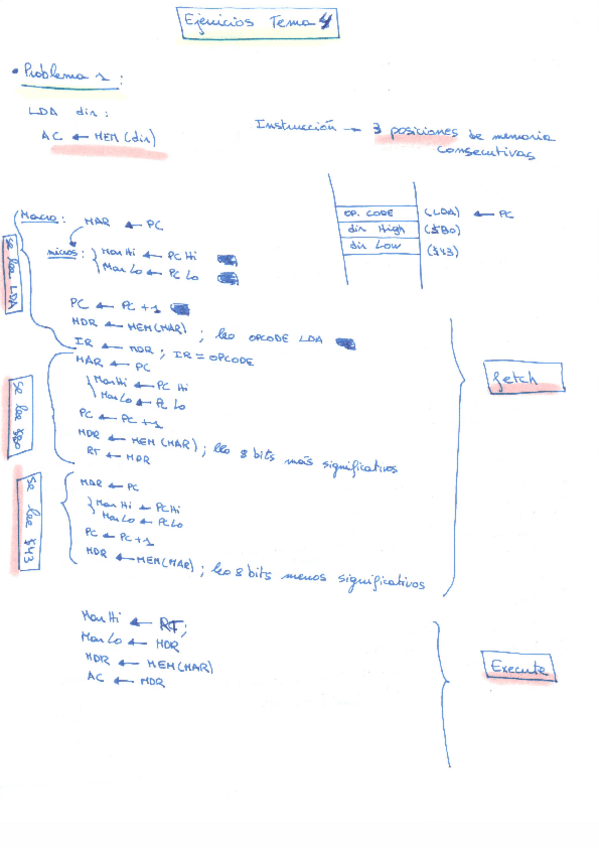 Ejercicios Tema 4
• Problema 1:
LDA dir:
AC ← MEM(dir)
Instrucción → 3 posiciones de memoria
consecutivas
OP. CODE (LDA) ← PC
dir High ($B0)
dir Low ($43)
Macro: MAR ← PC
micros: MarHi ← PC Hi
MarLo ← PC Lo
Se lee LDA
PC ← PC + 1
MDR ← MEM(MAR) ; leo OPCODE LDA
IR ← MDR ; IR = OPCODE
MAR ← PC
MarHi ← PC Hi
MarLo ← PC Lo
Se lee $B0
PC ← PC + 1
MDR ← MEM(MAR) ; leo 8 bits más significativos
RT ← MDR
fetch
MAR ← PC
MarHi ← PCHi
MarLo ← PCLo
Se lee $43
PC ← PC + 1
MDR ← MEM(MAR) ; leo 8 bits menos significativos
MarHi ← RT;
MarLo ← MDR
MDR ← MEM(MAR)
AC ← MDR
Execute